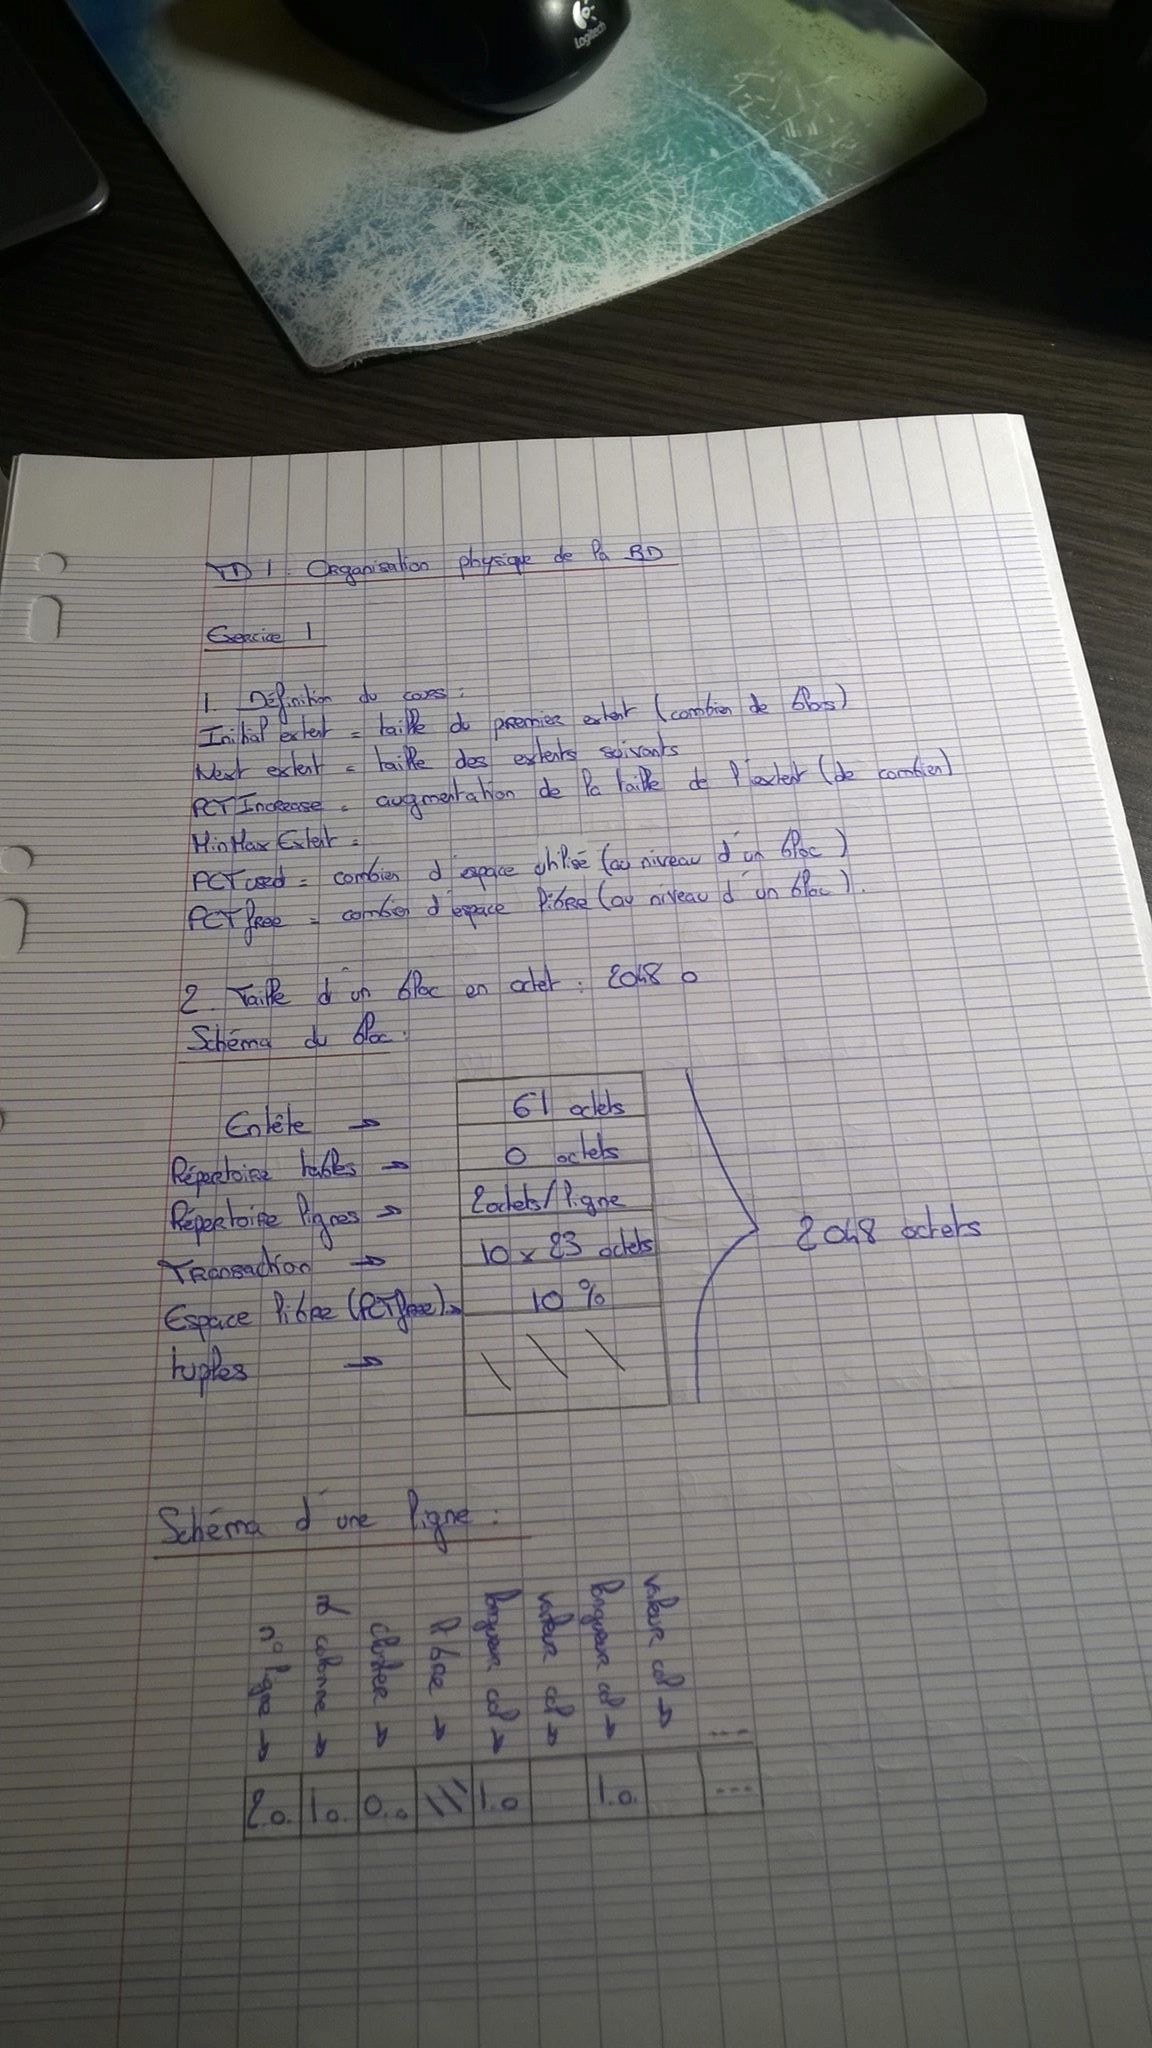 Logitech
TD 1. Organisation physique de la BD
Exercice 1
1. Définition du cours :
Initial extent = taille du premier extent (combien de blocs)
Next extent = taille des extents suivants
PCT Increase = augmentation de la taille de l'extent (de combien)
Min Max Extent =
PCT used = combien d'espace utilisé (au niveau d'un bloc)
PCT free = combien d'espace libre (au niveau d'un bloc).
2. Taille d'un bloc en octet : 2048 o
Schéma du bloc :
Entête → 61 octets
Répertoire tables → 0 octets
Répertoire lignes → 2 octets/ligne
Transaction → 10 x 23 octets
Espace libre (PCT free) → 10 %
tuples →
2048 octets
Schéma d'une ligne :
n° ligne →
colonne →
cluster →
libre →
longueur col →
valeur col →
longueur col →
valeur col →
...
2 o. 1 o. 0 o 1 o 1 o. ...